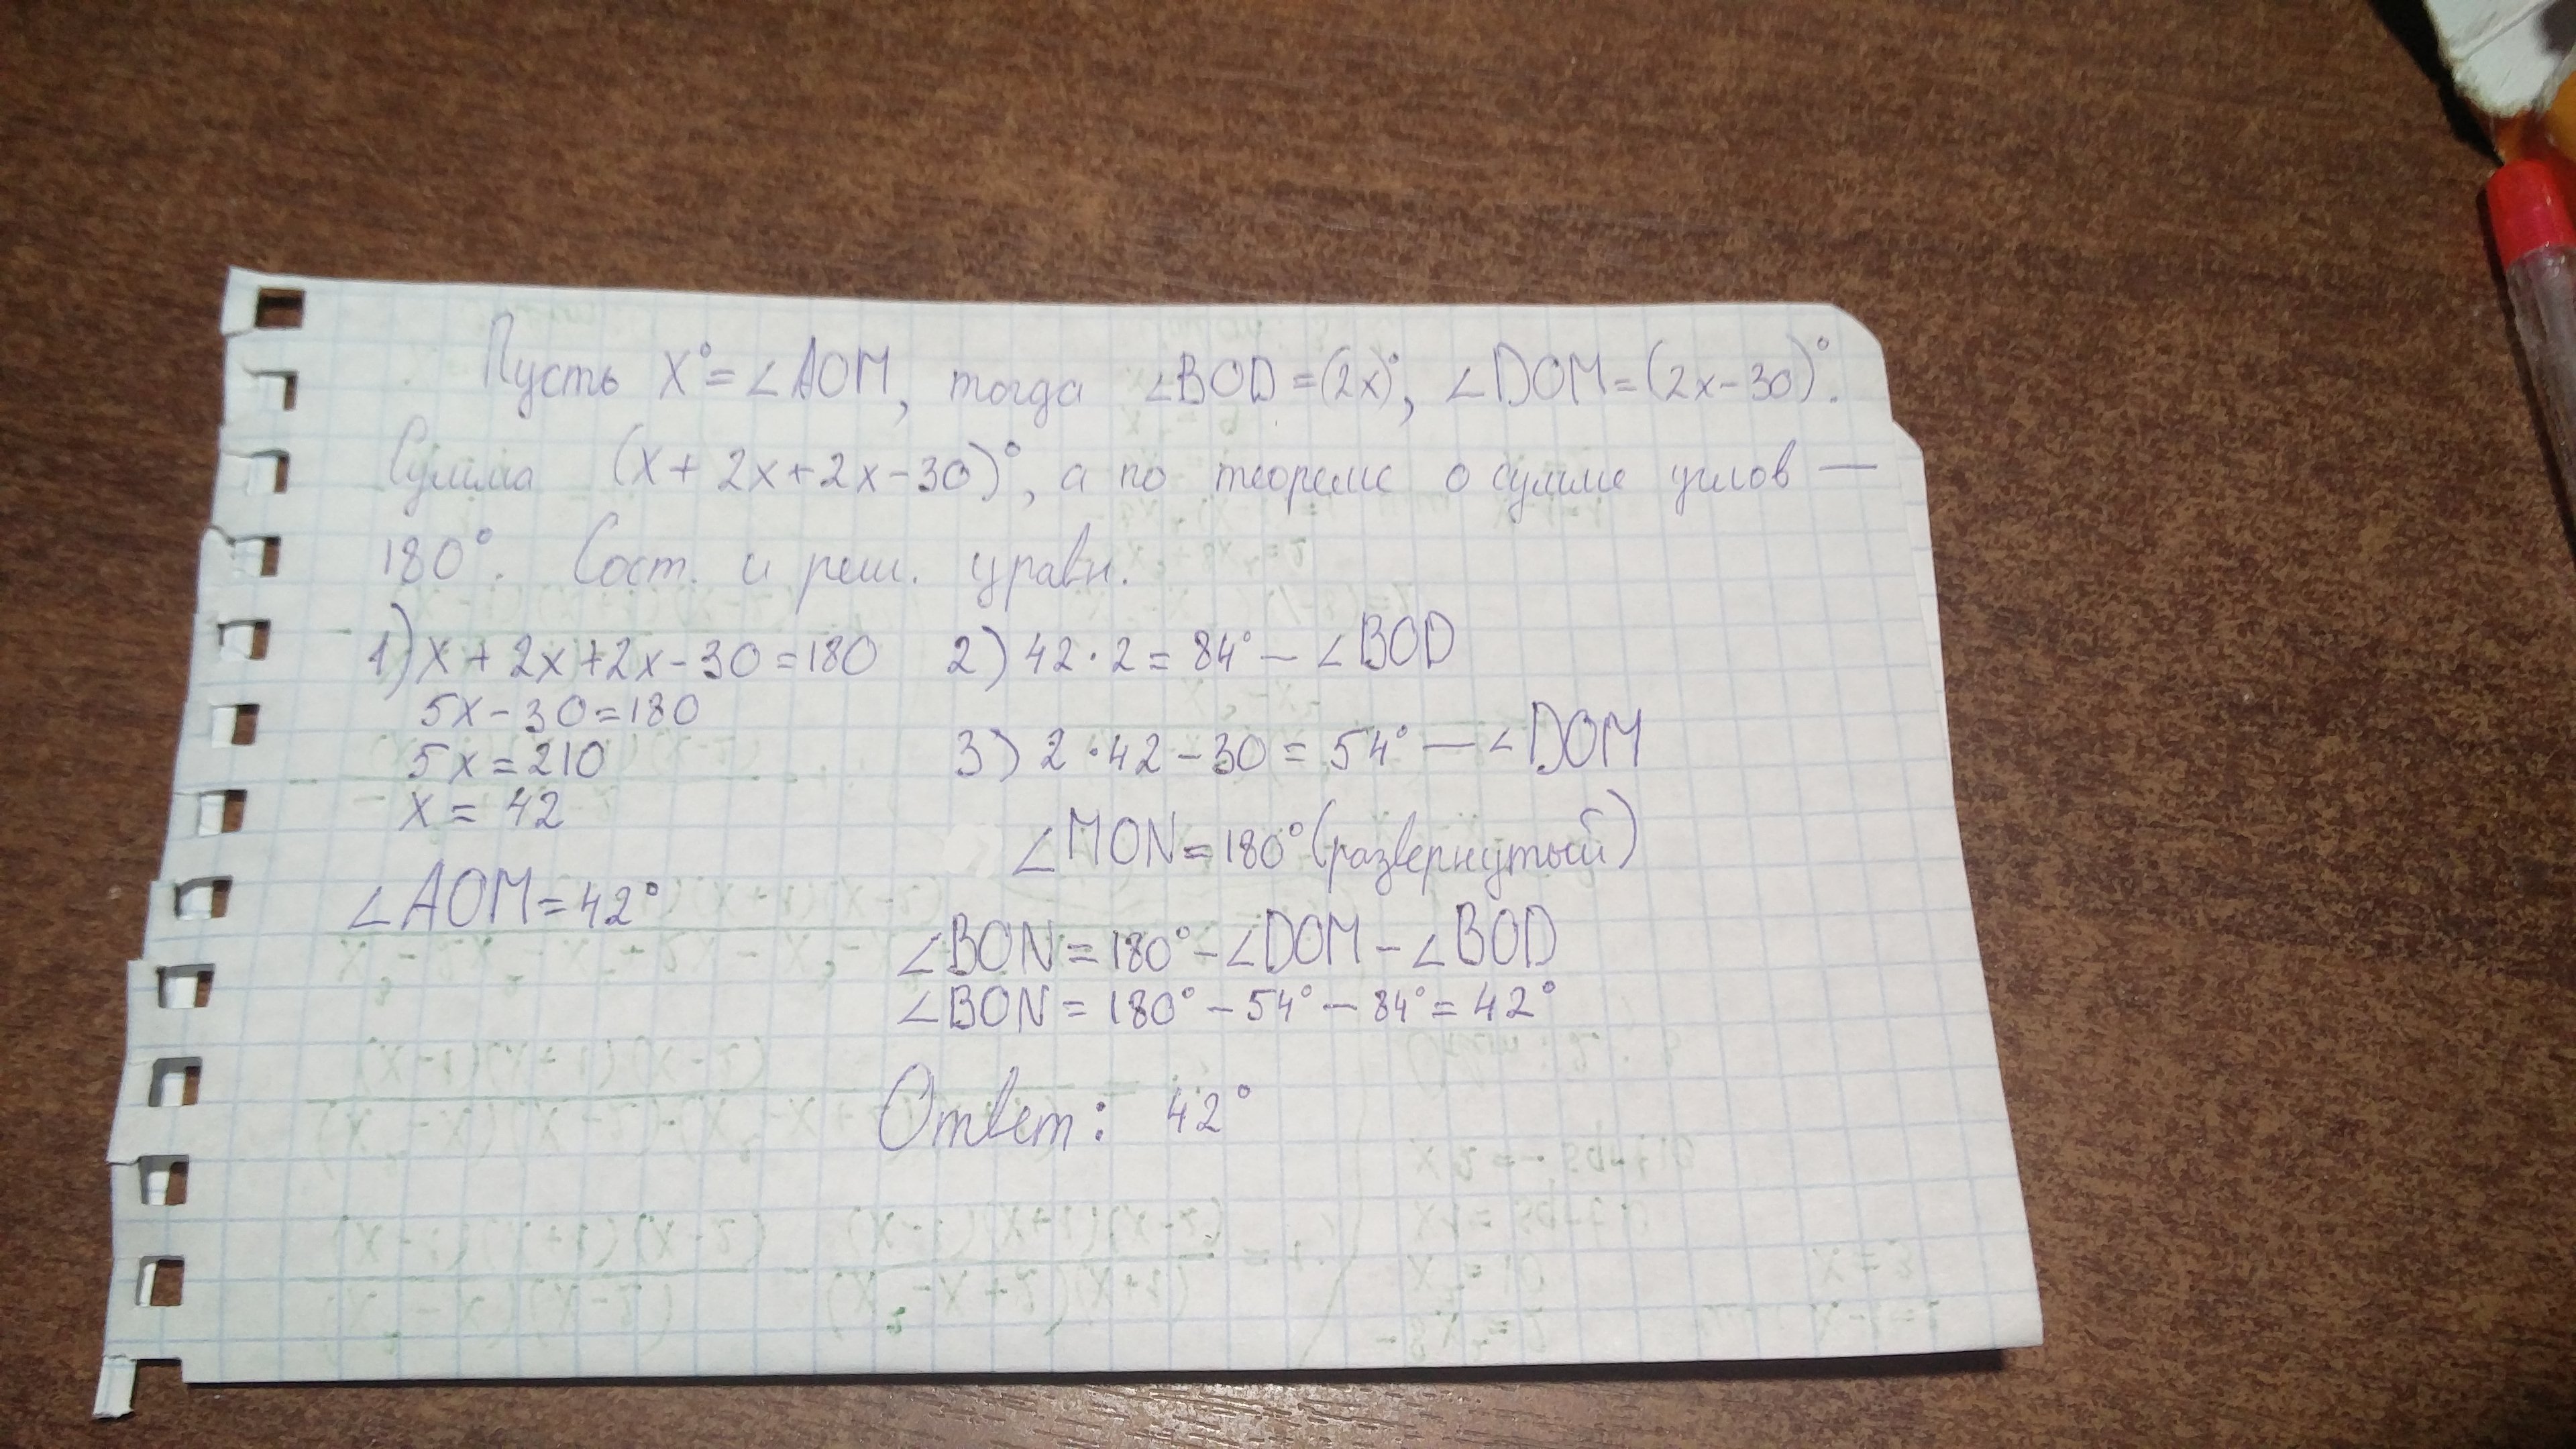 Пусть x° = ∠AOM, тогда ∠BOD = (2x)°, ∠DOM = (2x-30)°.
Сумма (x + 2x + 2x - 30)°, а по теореме о сумме углов —
180°. Сост. и реш. уравн.
1) x + 2x + 2x - 30 = 180
5x - 30 = 180
5x = 210
x = 42
∠AOM = 42°
2) 42 · 2 = 84° — ∠BOD
3) 2 · 42 - 30 = 54° — ∠DOM
∠MON = 180° (развернутый)
∠BON = 180° - ∠DOM - ∠BOD
∠BON = 180° - 54° - 84° = 42°
Ответ: 42°